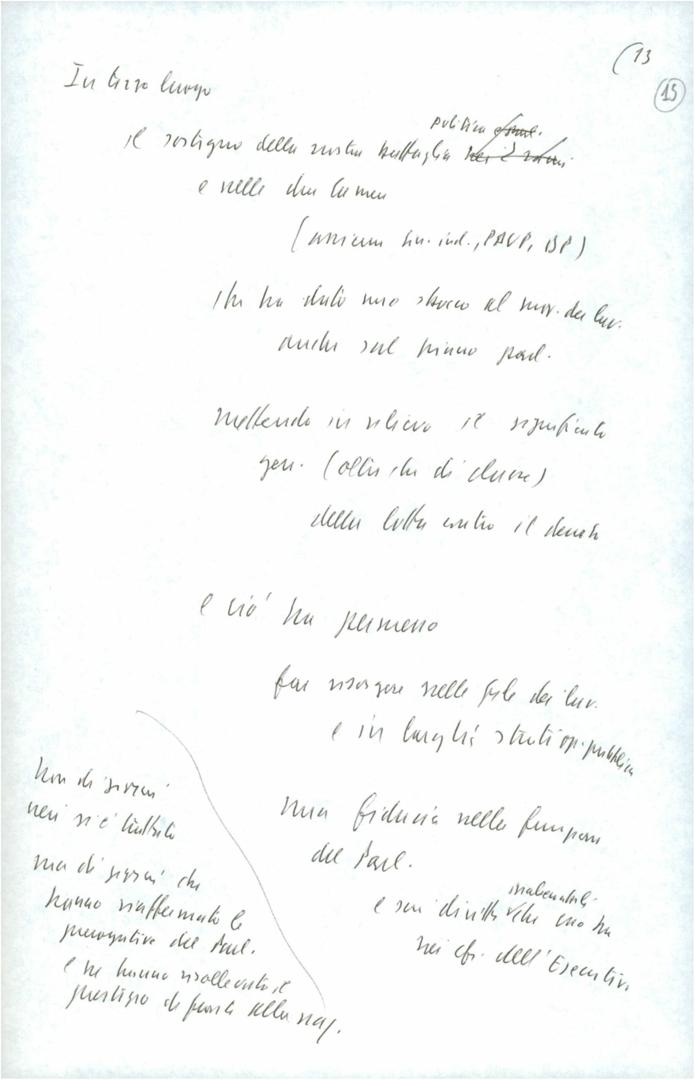 (13
15
In terzo luogo
politica
il sostegno della nostra battaglia
e nelle due Camere
(assieme sin. ind., PdUP, DP)
che ha dato uno sbocco al mov. dei lav.
anche sul piano parl.
mettendo in rilievo il significato
gen. (oltre che di classe)
della lotta contro il decreto
e ciò ha permesso
far risorgere nelle file dei lav.
e in larghi strati op. pubblica
una fiducia nelle funzioni
del Parl.
inalienabili
e sui diritti che esso ha
nei cfr. dell'Esecutivo
Non di giorni
neri si è trattato
ma di giorni che
hanno riaffermato le
prerogative del Parl.
e ne hanno risollevato il
prestigio di fronte alla naz.